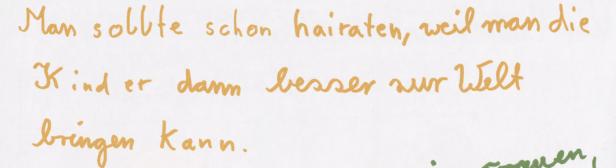 Man sollte schon hairaten, weil man die
Kinder dann besser zur Welt
bringen kann.